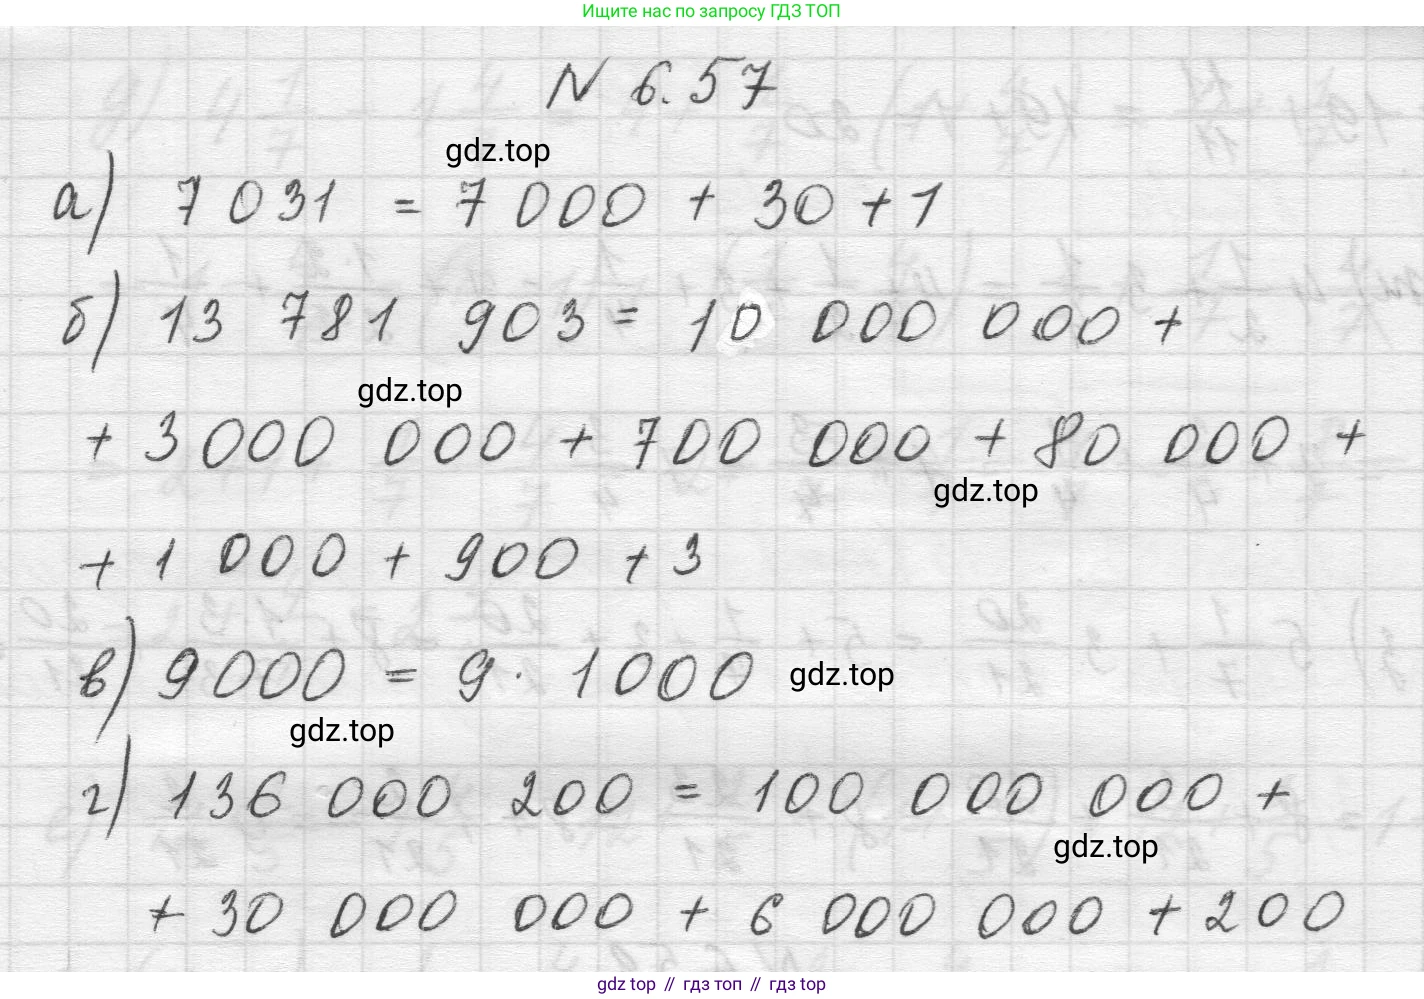 Ищите нас по запросу ГДЗ ТОП
N 6.57
gdz.top
а) 7 031 = 7 000 + 30 + 1
б) 13 781 903 = 10 000 000 +
gdz.top
+ 3 000 000 + 700 000 + 80 000 +
gdz.top
+ 1 000 + 900 + 3
в) 9000 = 9 · 1000
gdz.top
gdz.top
г) 136 000 200 = 100 000 000 +
gdz.top
+ 30 000 000 + 6 000 000 + 200
gdz top // гдз топ // gdz top